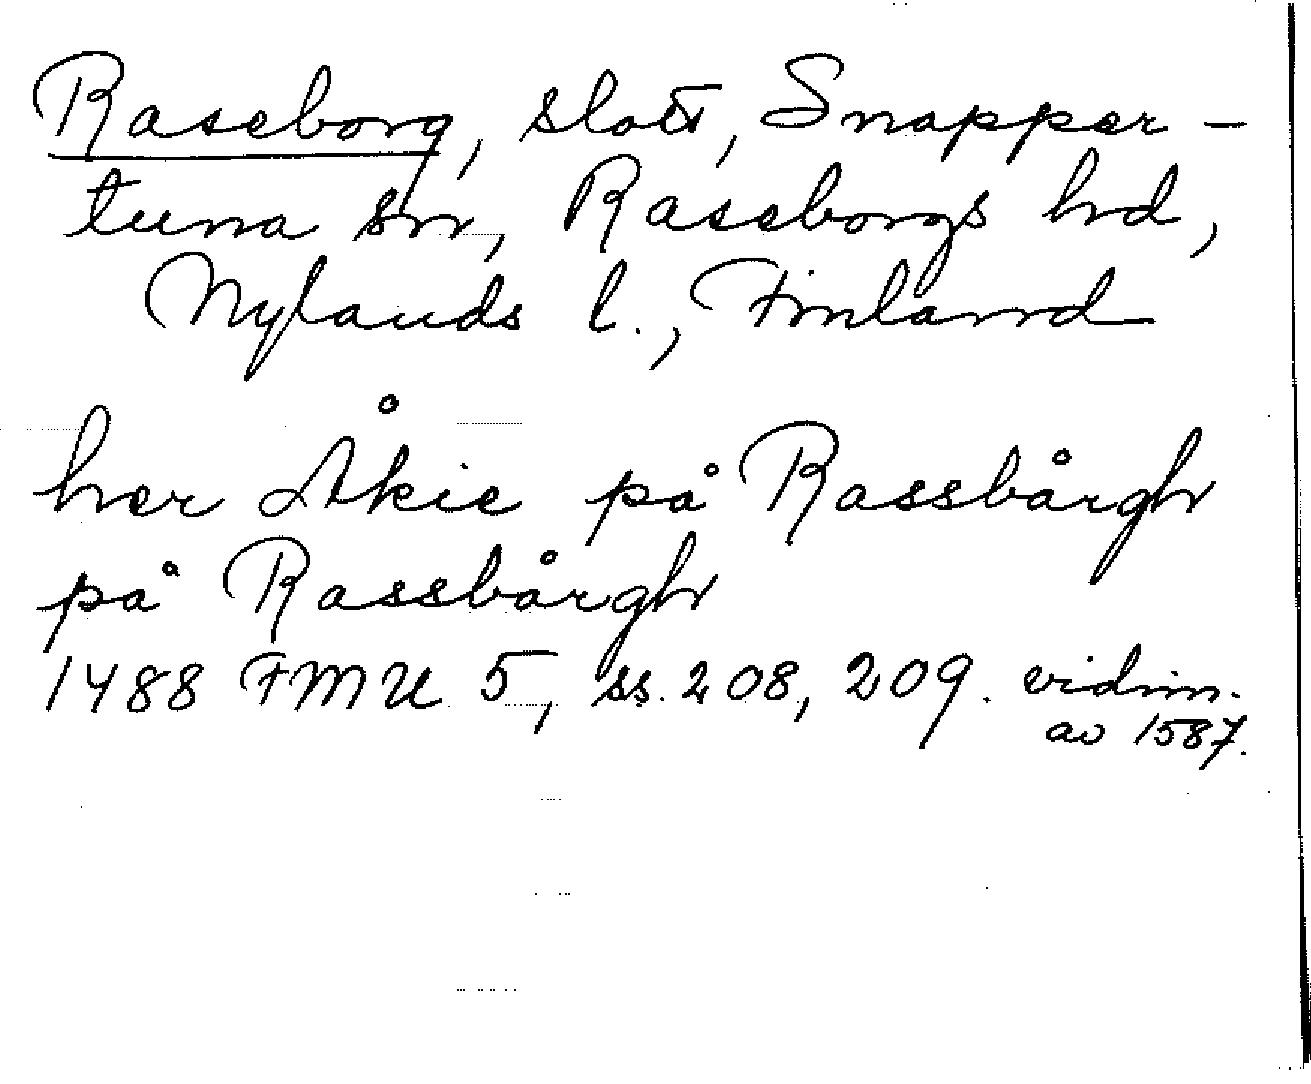 Raseborg, slott, Snapper-
tuna sn, Raseborgs hd,
Nylands l., Finland
her Åkie på Rassbårgh
på Rassbårgh
1488 FMU 5, ss. 208, 209. vidim.
av 1587.